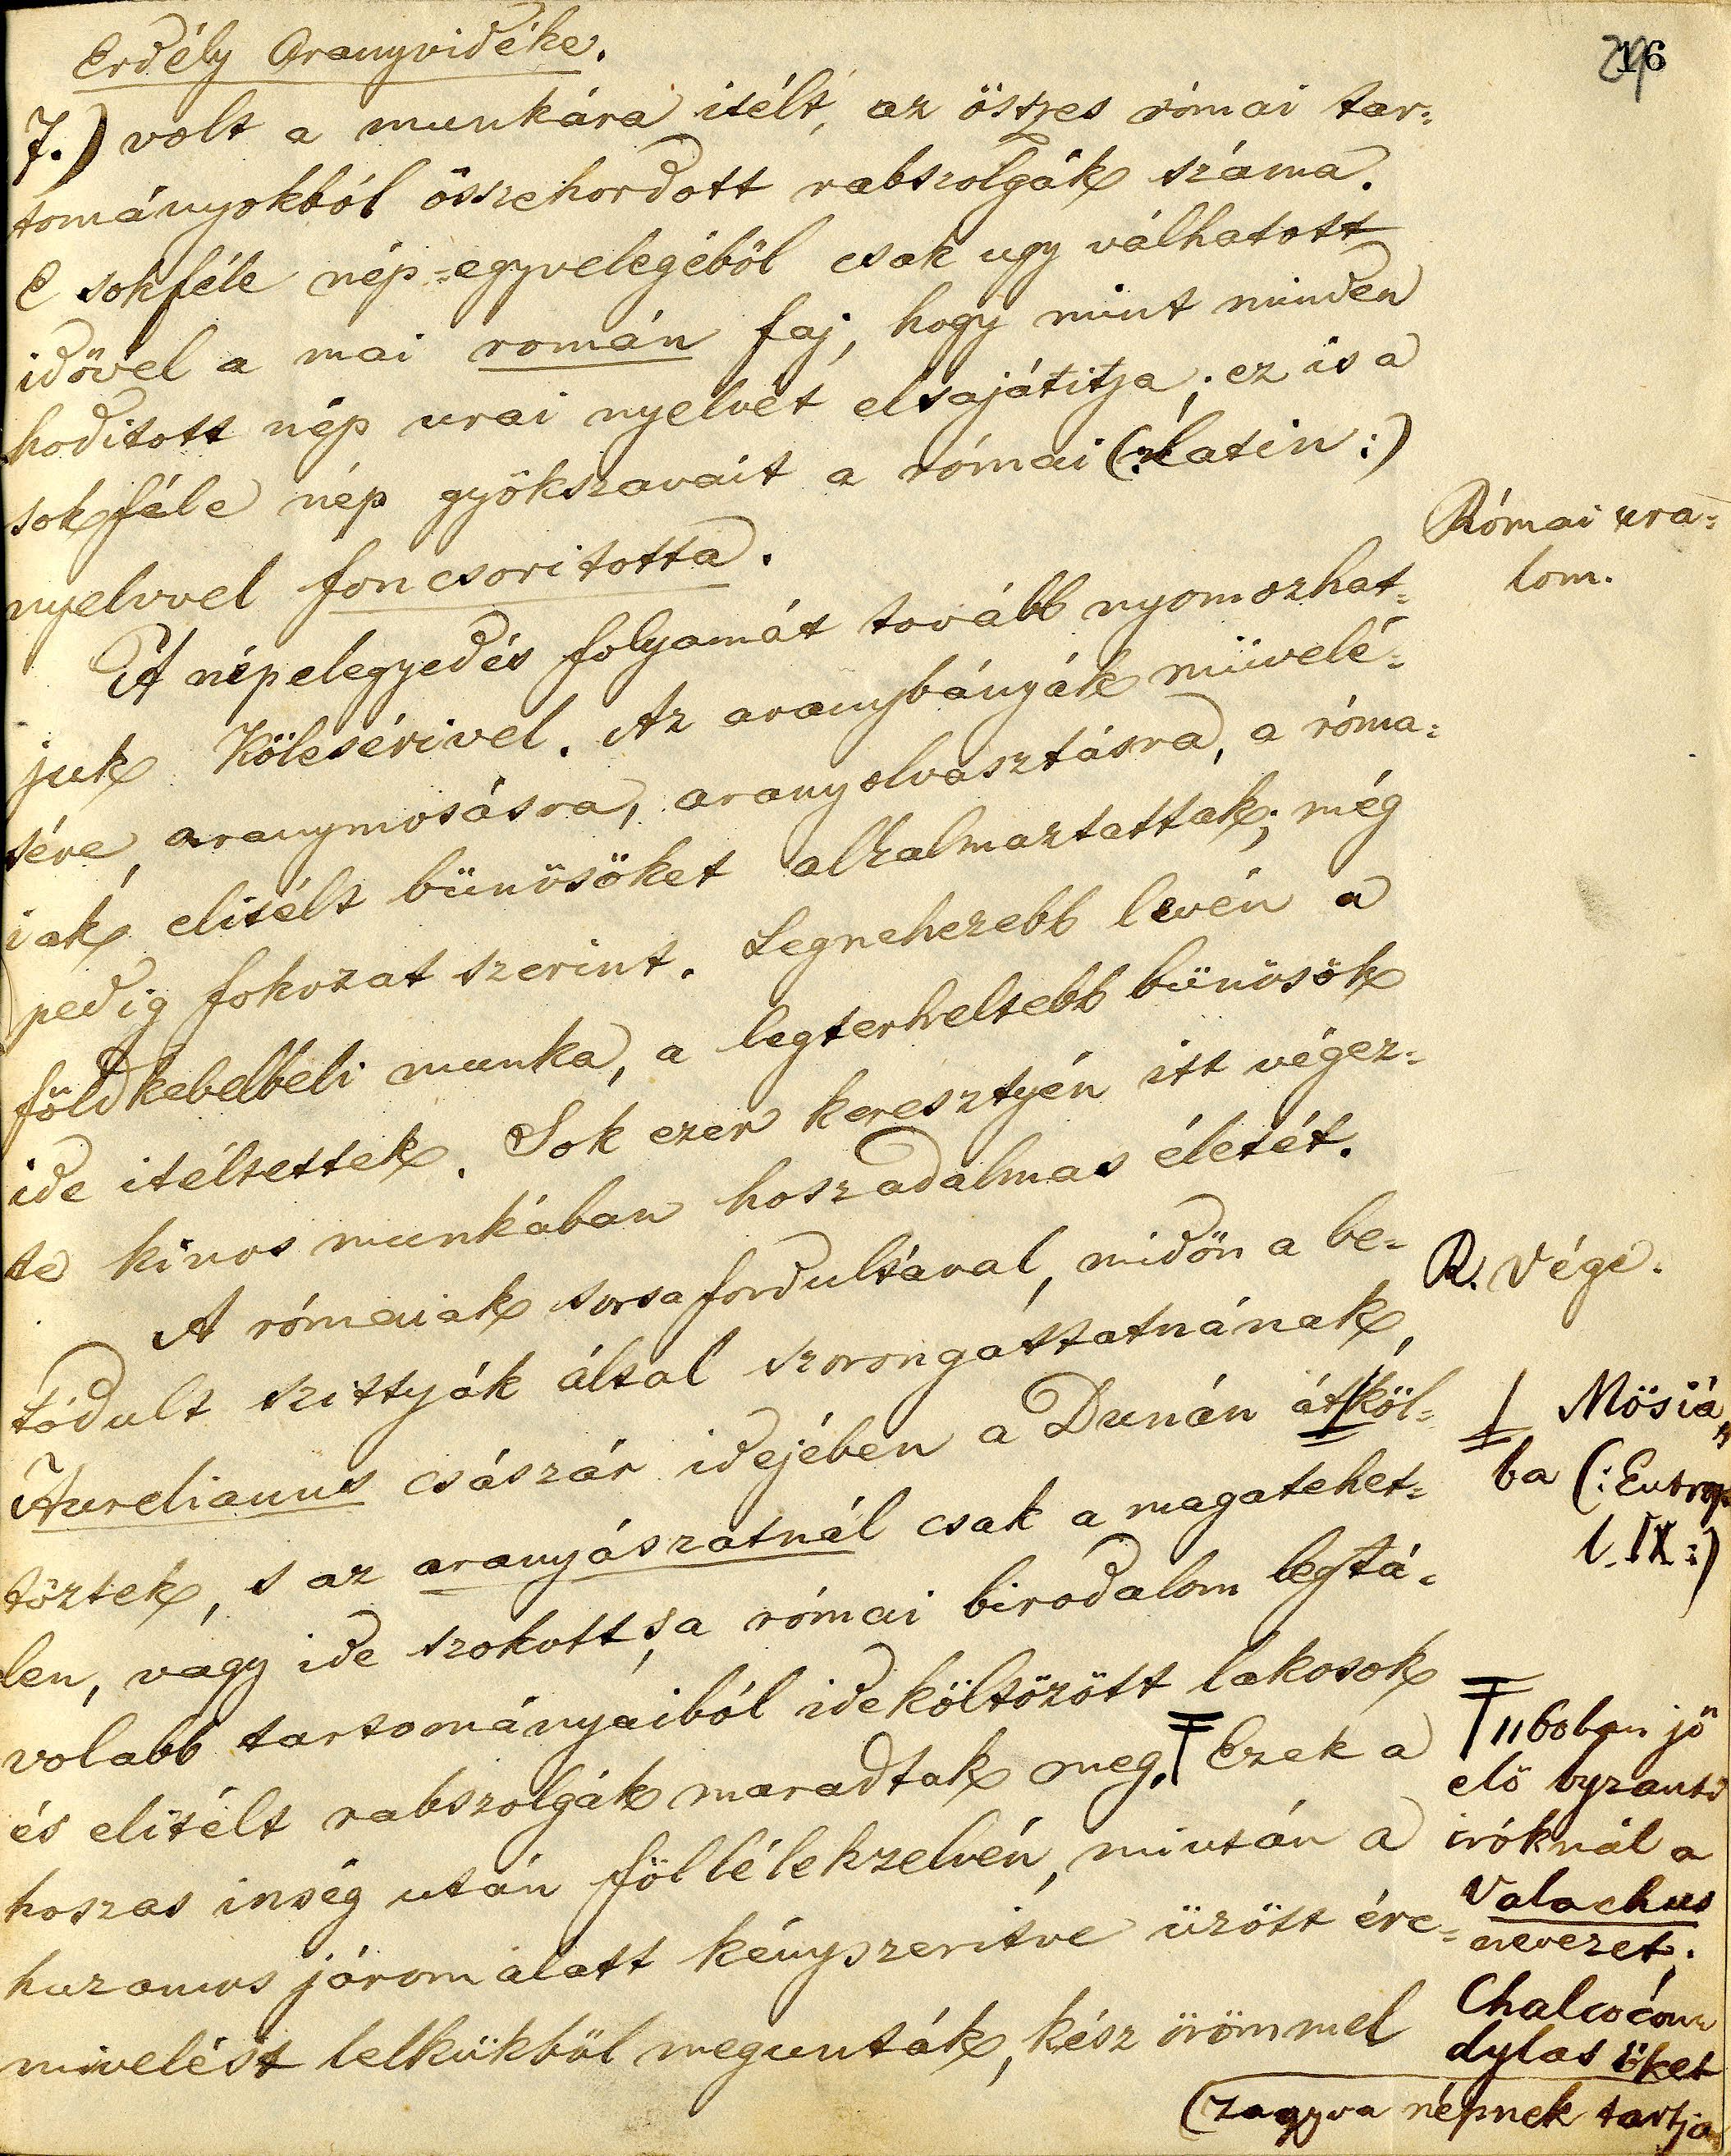 Erdély Aranyvidéke.
16
7.) volt a munkára itélt, az összes római tar-
tományokból összehordott rabszolgák száma.
E sokféle nép-egyvelegéből csak ugy válhatott
idővel a mai román faj, hogy mint minden
hoditott nép urai nyelvét elsajátitja; ez is a
sokféle nép gyökszavait a római (:latin:)
nyelvvel foncsoritotta.
Római ura-
lom.
A népelegyedés folyamát tovább nyomozhat-
juk Kölesérivel. Az aranybányák müvelé-
sére, aranymosásra, aranyolvasztásra, a róma-
iak elitélt bünösöket alkalmaztattak; még
pedig fokozat szerint. Legnehezebb lévén a
földkebelbeli munka, a legterheltebb bünösök
ide itéltettek. Sok ezer keresztyén itt végez-
te kinos munkában hoszadalmas életét.
A rómaiak sorsa fordultával, midőn a be-
R. Vége.
tódult szittyák által szorongattatnának,
Aurelianus császár idejében a Dunán át köl-
Mösiá-
ba (:Eutrop
l. IX:)
töztek, s az aranyászatnál csak a magatehet-
len, vagy ide szokott, s a római birodalom legtá-
volabb tartományaiból ideköltözött lakosok
és elitélt rabszolgák maradtak meg. Ezek a
hoszas inség után föllélekzelvén, miután a
huzamos járom alatt kényszeritve üzött érc-
mivelést lelkükből megunták, kész örömmel
1160ban jö
elö byzanti
iróknál a
Valachus
nevezet.
Chalcocon
dylas őket
zagyva népnek tartja